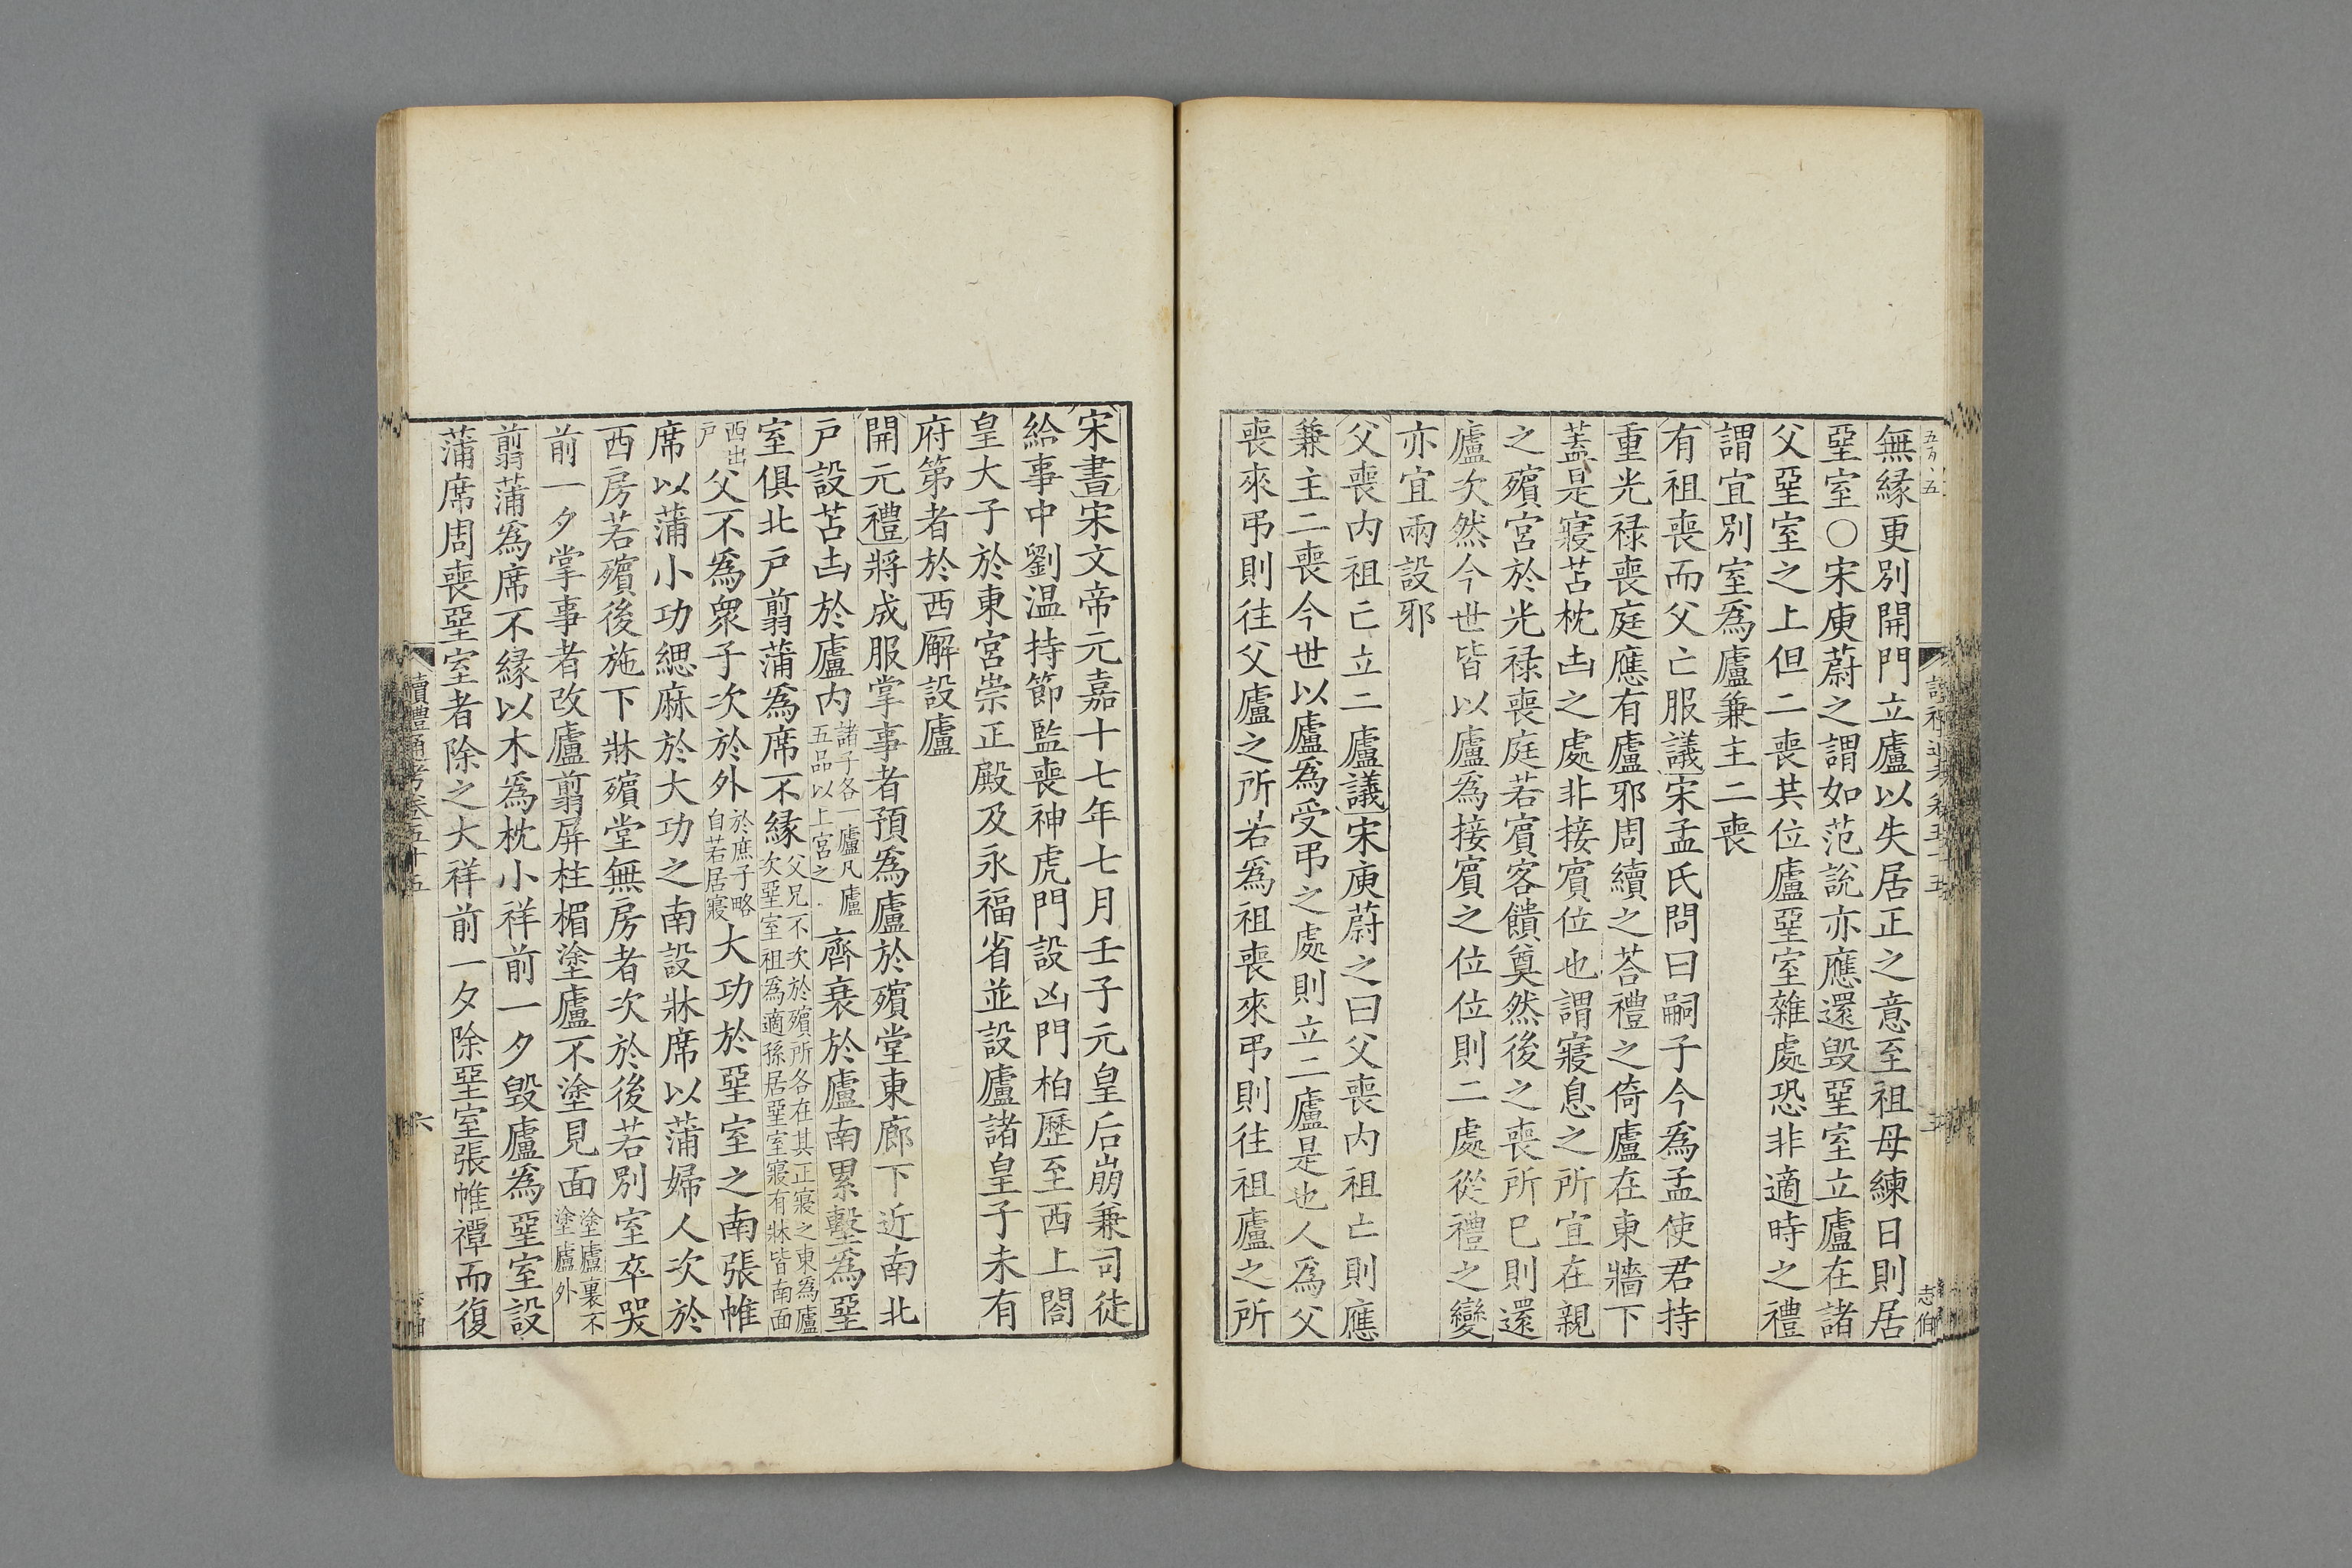 無緣更別開門立廬以失居正之意至祖母練日則居
堊室○宋庾蔚之謂如范說亦應還毀堊室立廬在諸
父堊室之上但二喪共位廬堊室雜處恐非適時之禮
謂宜別室爲廬兼主二喪
有祖喪而父亡服議宋孟氏問曰嗣子今爲孟使君持
重光祿喪庭應有廬邪周續之荅禮之倚廬在東牆下
蓋是寢苫枕凷之處非接賔位也謂寢息之所宜在親
之殯宮於光祿喪庭若賔客饋奠然後之喪所巳則還
廬次然今世皆以廬爲接賔之位位則二處從禮之變
亦宜兩設邪
父喪内祖亡立二廬議宋庾蔚之曰父喪内祖亡則應
兼主二喪今世以廬爲受弔之處則立二廬是也人爲父
喪來弔則往父廬之所若爲祖喪來弔則往祖廬之所
宋書宋文帝元嘉十七年七月壬子元皇后崩兼司徒
給事中劉温持節監喪神虎門設凶門柏歷至西上閤
皇大子於東宮崇正殿及永福省並設廬諸皇子未有
府第者於西廨設廬
開元禮將成服掌事者預爲廬於殯堂東廊下近南北
戸設苫凷於廬内諸子各一廬凡廬五品以上宮之齊衰於廬南累墼爲堊
室俱北戸翦蒲爲席不緣父兄不次於殯所各在其正寢之東爲廬次堊室祖爲適孫居堊室寢有牀皆南面
西出戸父不爲衆子次於外於庶子略自若居寢大功於堊室之南張帷
席以蒲小功緦麻於大功之南設牀席以蒲婦人次於
西房若殯後施下牀殯堂無房者次於後若別室卒哭
前一夕掌事者改廬翦屏柱楣塗廬不塗見面塗廬裏不塗廬外
翦蒲爲席不緣以木爲枕小祥前一夕毀廬爲堊室設
蒲席周喪堊室者除之大祥前一夕除堊室張帷禫而復
讀禮通考卷五十五
六